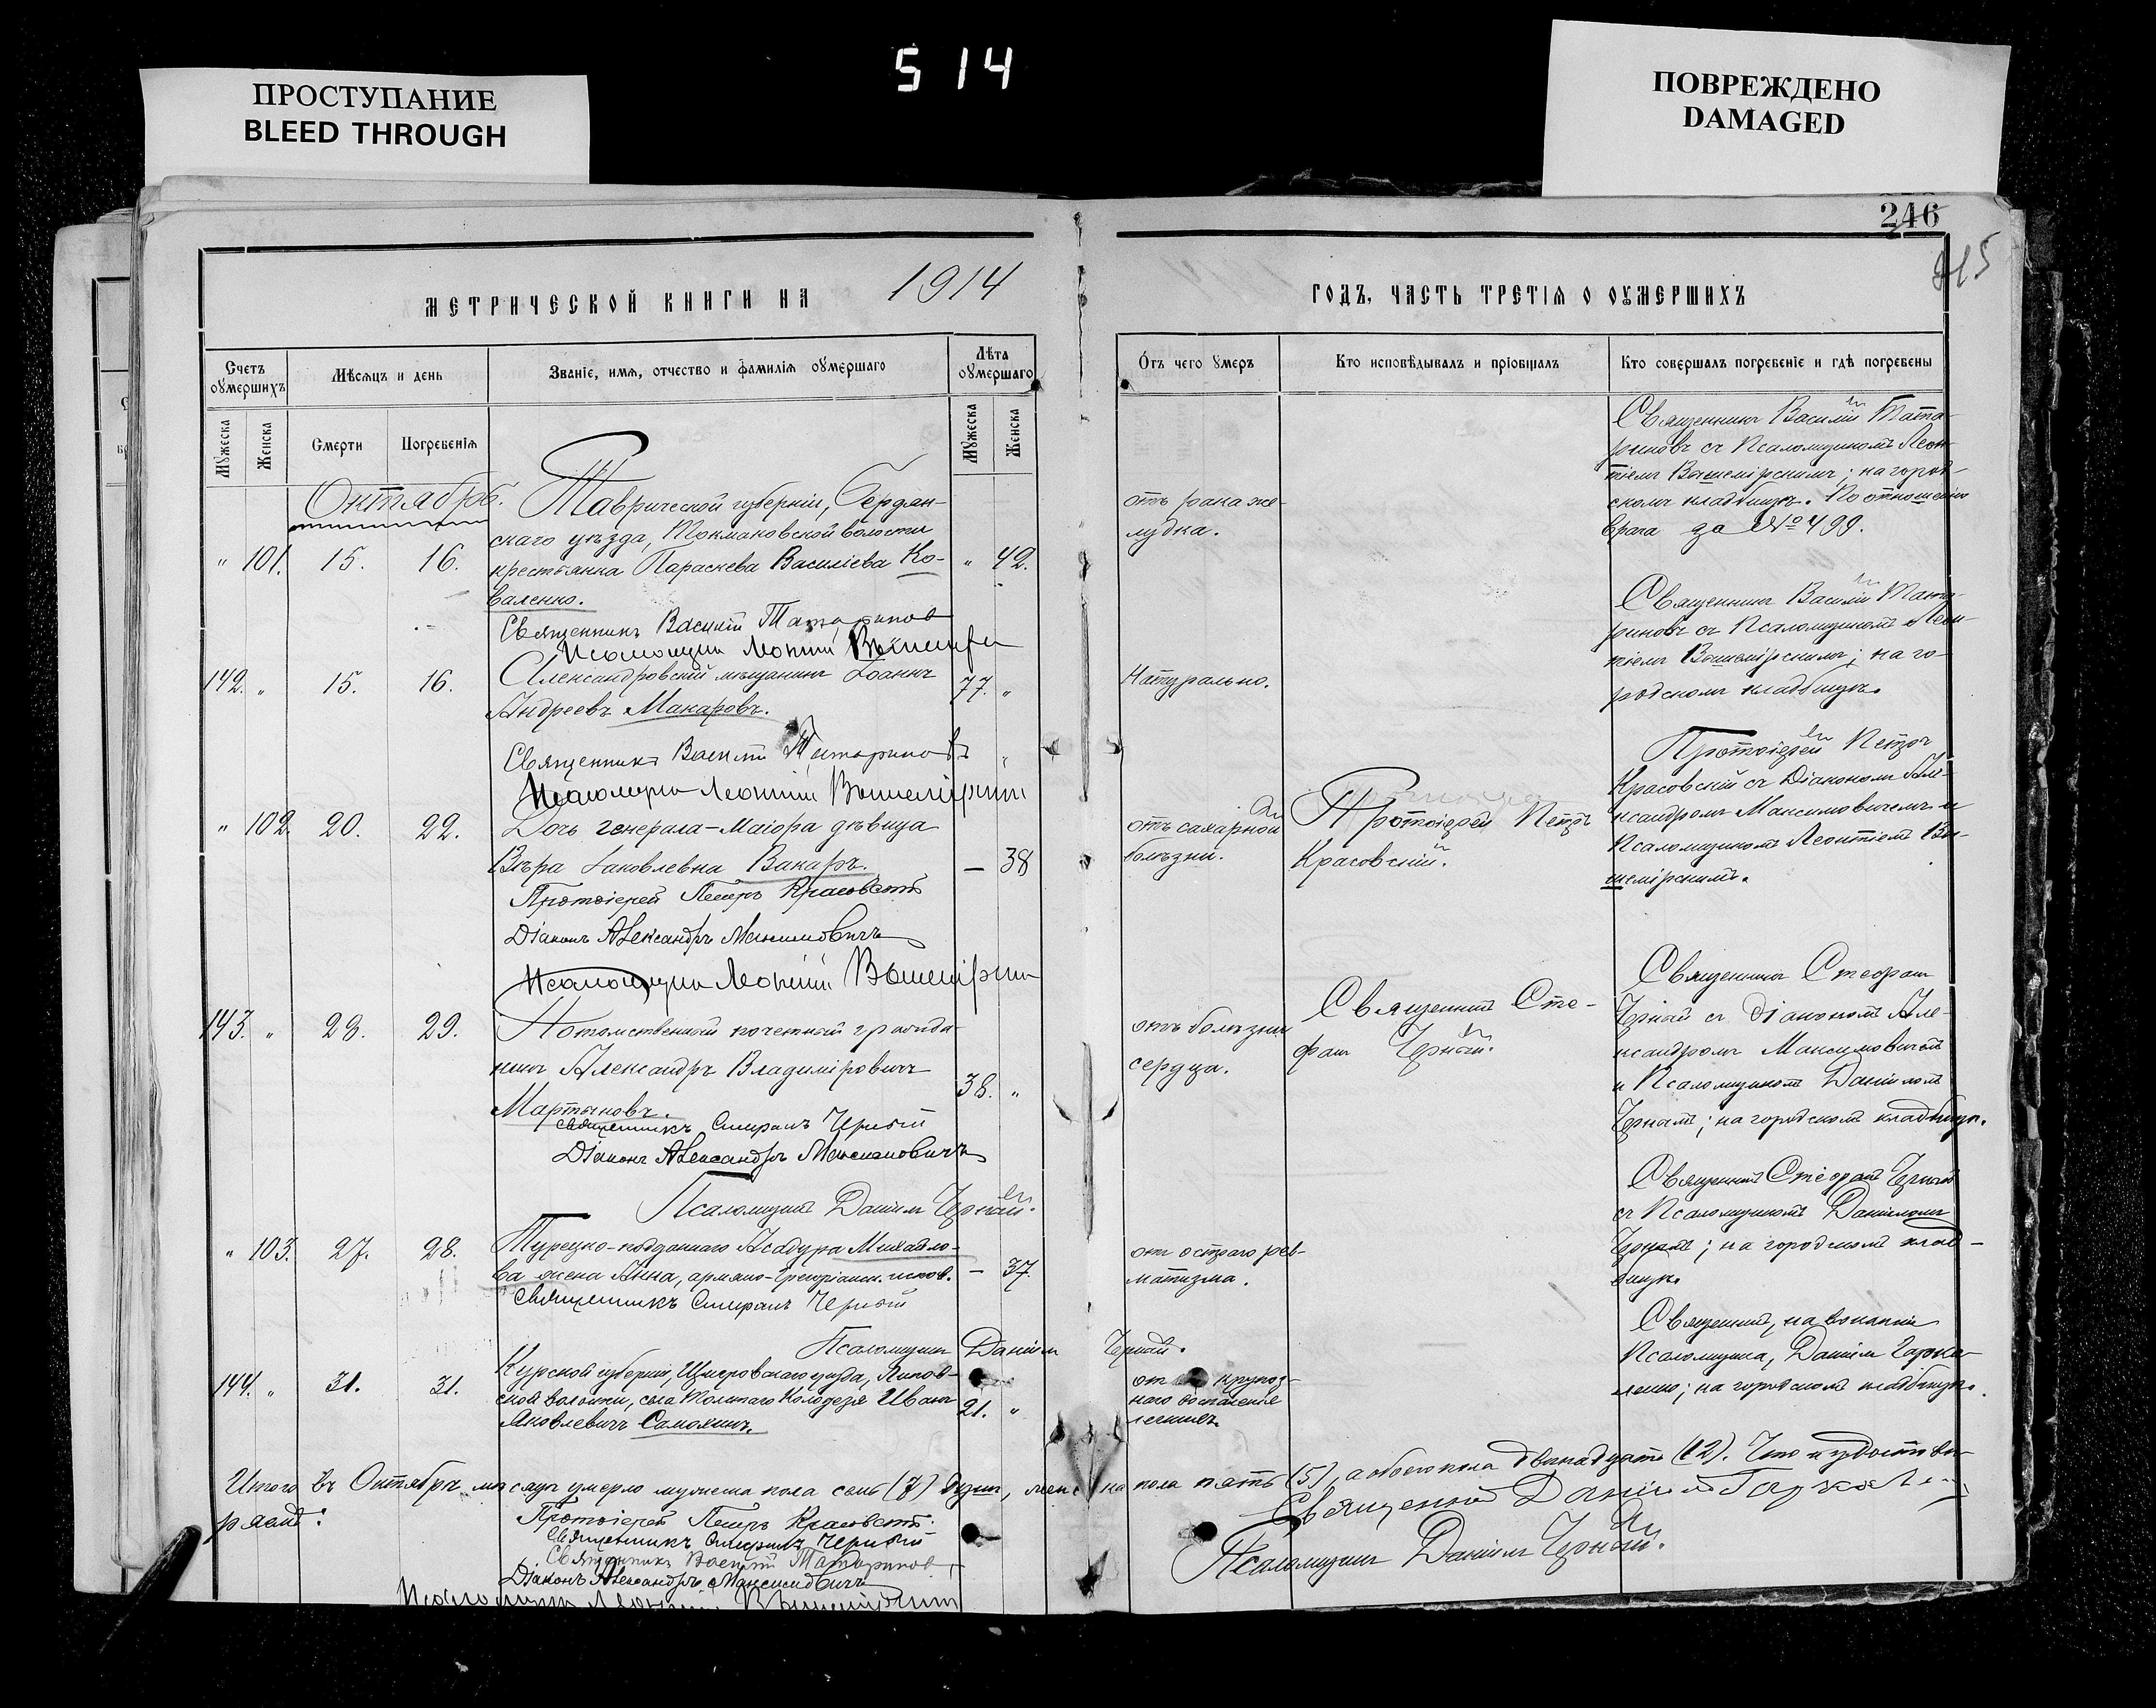 ПРОСТУПАНИЕ
BLEED THROUGH
514
ПОВРЕЖДЕНО
DAMAGED
246
МЕТРИЧЕСКОЙ КНИГИ НА 1914
ГОДЪ, ЧАСТЬ ТРЕТІЯ О ОУМЕРШИХЪ
Счетъ оумершихъ
Мужеска
Женска
Мѣсяцъ и день
Смерти
Погребенія
Званіе, имя, отчество и фамилія оумершаго
Лѣта оумершаго
Мужеска
Женска
Отъ чего умеръ
Кто исповѣдывалъ и пріобщалъ
Кто совершалъ погребеніе и гдѣ погребены
Октябрь.
" 101. 15. 16.
Таврической губерніи, Бердян-
скаго уѣзда, Токмаковской волости
крестьянка Параскева Василіева Ко-
валенко.
" 42.
отъ рака же-
лудка.
Священникъ Василій Тата-
риновъ съ Псаломщикомъ Леон-
тіемъ Вышемірскимъ; на город-
скомъ кладбищѣ. По отношенію
врача за № 499.
Священникъ Василій Татариновъ
Псаломщикъ Леонтій Вышемірскій
142. " 15. 16.
Александровскій мѣщанинъ Іоаннъ
Андреевъ Макаровъ.
77. "
Натурально.
Священникъ Василій Тата-
риновъ съ Псаломщикомъ Леон-
тіемъ Вышемірскимъ; на го-
родскомъ кладбищѣ.
Священникъ Василій Татариновъ
Псаломщикъ Леонтій Вышемірскій
" 102. 20. 22.
Дочь генерала-Маіора дѣвица
Вѣра Іаковлевна Вакаръ.
— 38
отъ сахарной
болѣзни.
Протоіерей Петръ
Красовскій.
Протоіерей Петръ
Красовскій съ Діакономъ Але-
ксандромъ Максимовичемъ и
Псаломщикомъ Леонтіемъ Вы-
шемірскимъ.
Протоіерей Петръ Красовскій
Діаконъ Александръ Максимовичъ
Псаломщикъ Леонтій Вышемірскій
143. " 28. 29.
Потомственный почетный гражда-
нинъ Александръ Владиміровичъ
Мартыновъ.
38. "
отъ болѣзни
сердца.
Священникъ Сте-
фанъ Черный.
Священникъ Стефанъ
Черный съ Діакономъ Але-
ксандромъ Максимовичемъ
и Псаломщикомъ Даніиломъ
Чернымъ; на городскомъ кладбищѣ.
Священникъ Стефанъ Черный
Діаконъ Александръ Максимовичъ
Псаломщикъ Даніилъ Черный.
" 103. 27. 28.
Турецко-подданнаго Асадура Михайло-
ва жена Анна, армяно-Грегоріанск. испов.
— 37.
отъ остраго рев-
матизма.
Священникъ Стефанъ Черный
съ Псаломщикомъ Даніиломъ
Чернымъ; на городскомъ клад-
бищѣ.
Священникъ Стефанъ Черный
Псаломщикъ Даніилъ Черный.
144. " 31. 31.
Курской губерніи, Щигровскаго уѣзда, Липов-
ской волости, села Толстаго Колодезя Иванъ
Яковлевичъ Самохинъ.
21. "
отъ крупоз-
наго воспаленія
легкихъ.
Священникъ, на вакансіи
Псаломщика, Даніилъ Гарка-
ленко; на городскомъ кладбищѣ.
Итого въ Октябрѣ мѣсяцѣ умерло мужеска пола семь (7) душъ, женска пола пять (5), а обоего пола двѣнадцать (12). Что и удостовѣ-
ряемъ:
Протоіерей Петръ Красовскій.
Священникъ Стефанъ Черный
Священникъ Василій Татариновъ
Діаконъ Александръ Максимовичъ
Псаломщикъ Леонтій Вышемірскій
Священникъ Даніилъ
Псаломщикъ Даніилъ Черный.